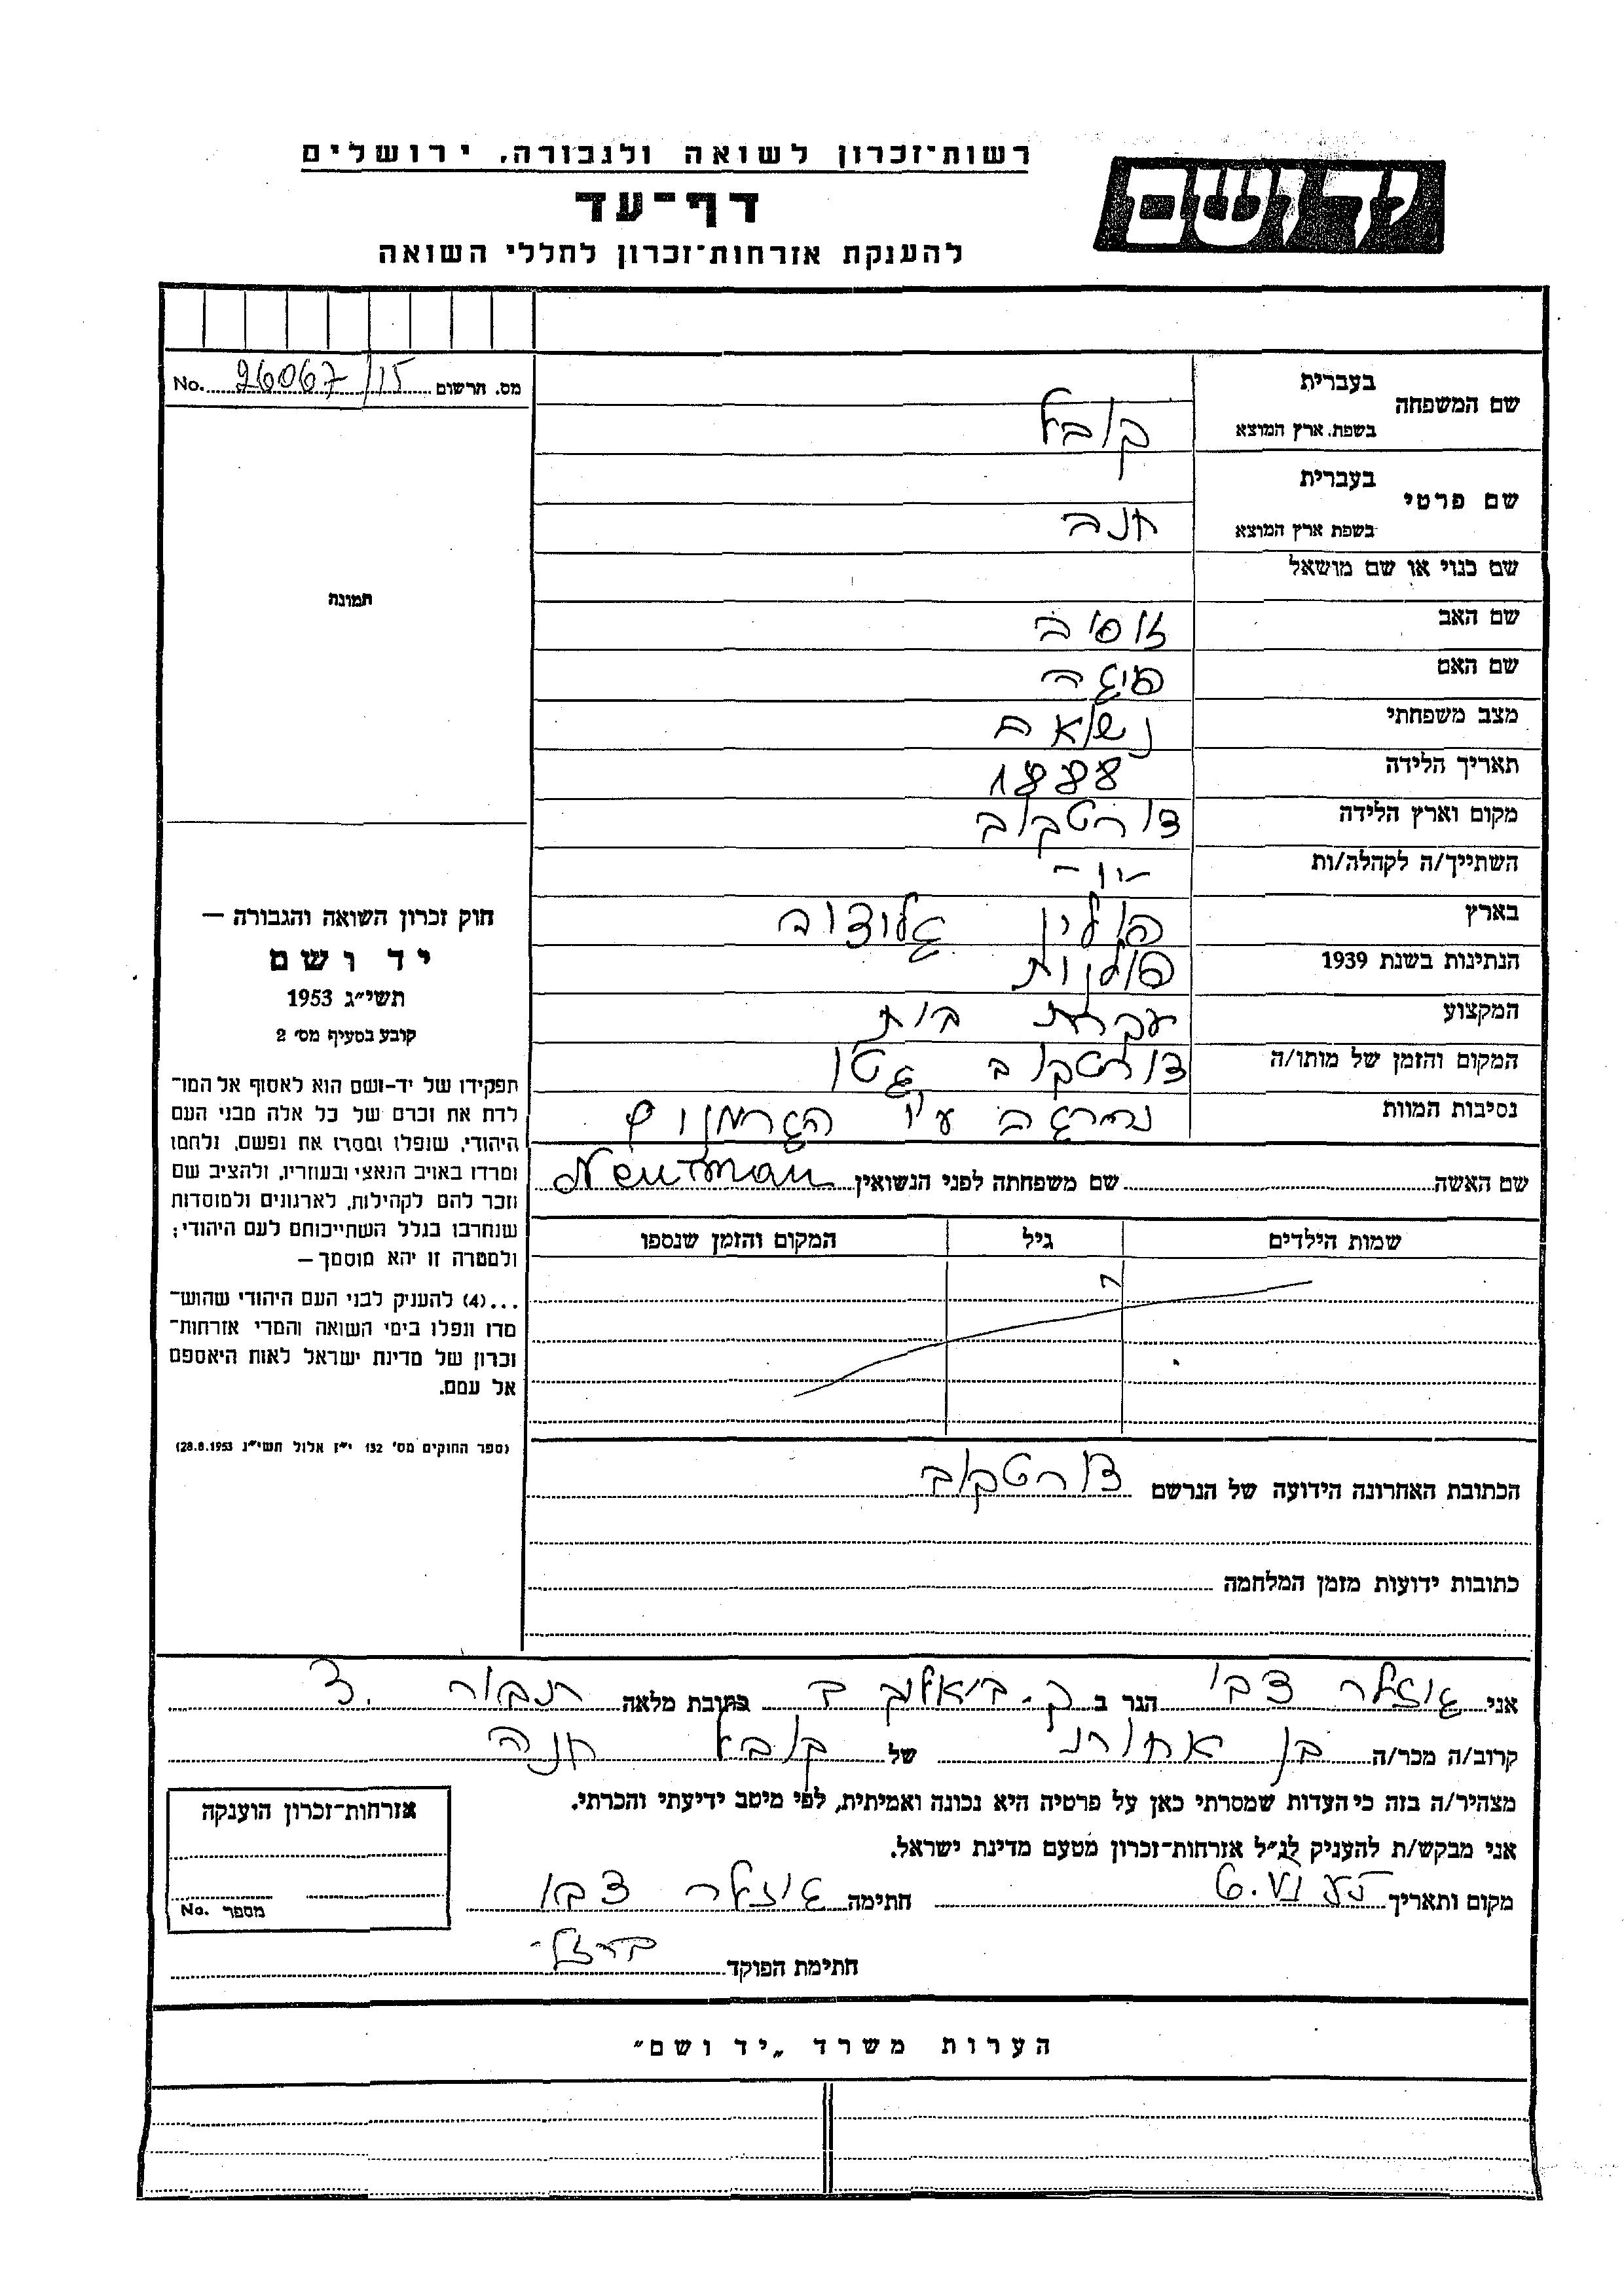 רשות־זכרון לשואה ולגבורה, ירושלים
יד ושם
דף־עד
להענקת אזרחות־זכרון לחללי השואה
מס. תרשום 26067/15 No.
שם המשפחה בעברית
בשפת ארץ המוצא קובל
שם פרטי בעברית
בשפת ארץ המוצא חנה
שם כנוי או שם מושאל
שם האב
שם האם פיגה
מצב משפחתי נשואה
תאריך הלידה 1888
מקום וארץ הלידה צורטקוב
השתייך/ה לקהלה/ות -״-
בארץ פולין
הנתינות בשנת 1939 פולנית
המקצוע עקרת בית
המקום והזמן של מותו/ה צורטקוב גטו
נסיבות המוות נהרגה ע״י הגרמנים
שם האשה שם משפחתה לפני הנשואין Neutman
שמות הילדים גיל המקום והזמן שנספו
הכתובת האחרונה הידועה של הנרשם צורטקוב
כתובות ידועות מזמן המלחמה
תמונה
חוק זכרון השואה והגבורה —
יד ושם
תשי״ג 1953
קובע בסעיף מס׳ 2
תפקידו של יד־ושם הוא לאסוף אל המו־
לדת את זכרם של כל אלה מבני העם
היהודי, שנפלו ומסרו את נפשם, נלחמו
ומרדו באויב הנאצי ובעוזריו, ולהציב שם
וזכר להם לקהילות, לארגונים ולמוסדות
שנחרבו בגלל השתייכותם לעם היהודי;
ולמטרה זו יהא מוסמך —
...(4) להעניק לבני העם היהודי שהוש־
מדו ונפלו בימי השואה והמרי אזרחות־
זכרון של מדינת ישראל לאות היאספם
אל עמם.
(ספר החוקים מס׳ 132 י״ז אלול תשי״ג 28.8.1953)
אני צבי הגר ב ק. ביאליק כתובת מלאה
קרוב/ה מכר/ה בן אחותי של קובל חנה
מצהיר/ה בזה כי העדות שמסרתי כאן על פרטיה היא נכונה ואמיתית, לפי מיטב ידיעתי והכרתי.
אני מבקש/ת להעניק לנ״ל אזרחות־זכרון מטעם מדינת ישראל.
מקום ותאריך חתימה צבי
חתימת הפוקד
אזרחות־זכרון הוענקה
מספר No.
הערות משרד „יד ושם״